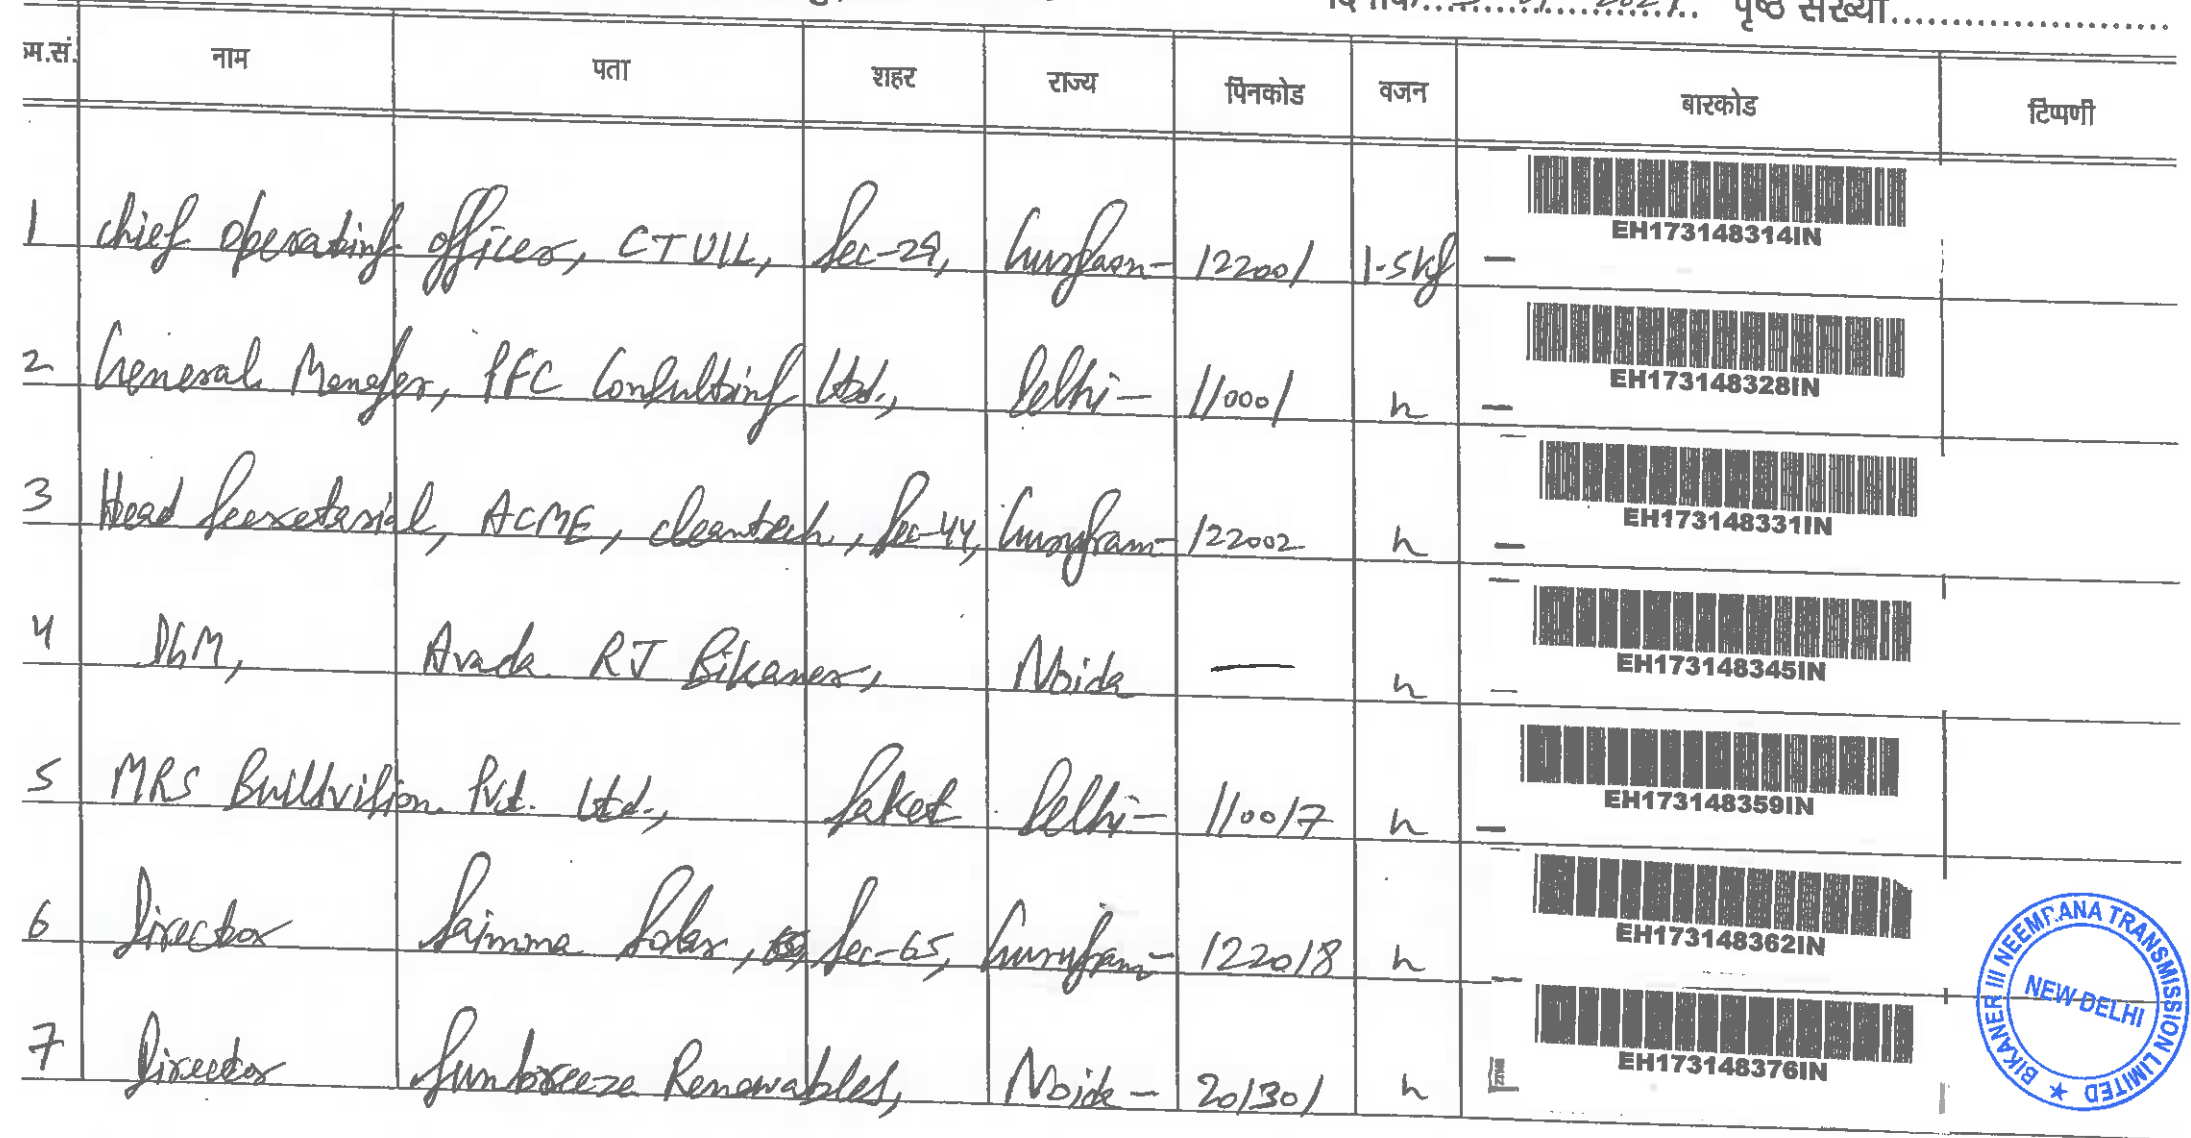 दिनांक.................... पृष्ठ संख्या........................
म.सं. नाम पता शहर राज्य पिनकोड वजन बारकोड टिप्पणी
1 Chief operating officer, CTUIL, Sec-29, Gurgaon- 122001 1.5kg EH173148314IN
2 General Manager, PFC Consulting Ltd., Delhi- 110001 EH173148328IN
3 Head Secretarial, ACME, cleantech, Sec-44, Gurugram- 122002 EH173148331IN
4 DGM, Avada RJ Bikaner, Noida — EH173148345IN
5 MRS Buildvision Pvt. Ltd., Saket Delhi- 110017 EH173148359IN
6 Director Solar, Sec-65, Gurugram- 122018 EH173148362IN
7 Director Sunbreeze Renewables, Noida- 201301 EH173148376IN
BIKANER III NEEMRANA TRANSMISSION LIMITED ★
NEW DELHI